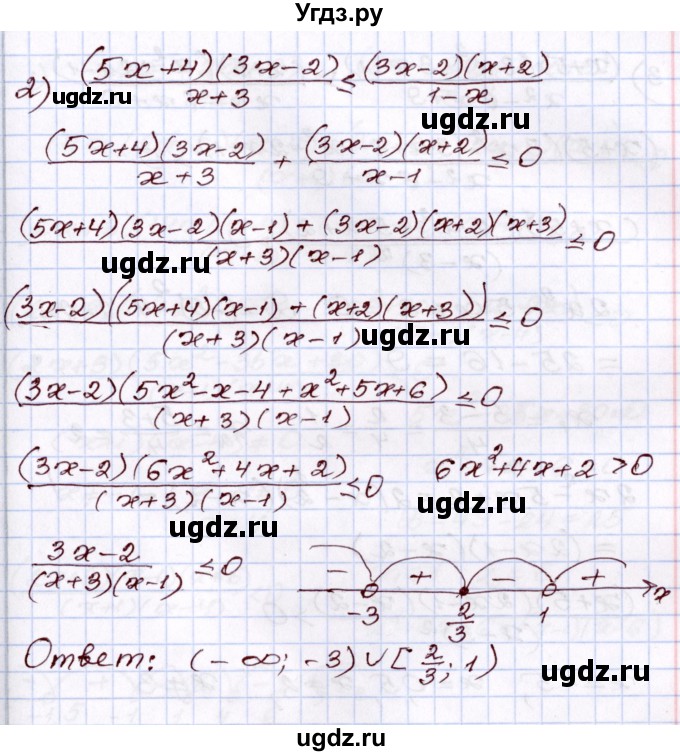 Угдз.ру
2) (5x+4)(3x-2)/(x+3) ≤ (3x-2)(x+2)/(1-x)
ugdz.ru
ugdz.ru
(5x+4)(3x-2)/(x+3) + (3x-2)(x+2)/(x-1) ≤ 0
((5x+4)(3x-2)(x-1) + (3x-2)(x+2)(x+3))/((x+3)(x-1)) ≤ 0
ugdz.ru
(3x-2)((5x+4)(x-1) + (x+2)(x+3))/((x+3)(x-1)) ≤ 0
ugdz.ru
(3x-2)(5x²-x-4+x²+5x+6)/((x+3)(x-1)) ≤ 0
(3x-2)(6x²+4x+2)/((x+3)(x-1)) ≤ 0 6x²+4x+2 > 0
ugdz.ru
(3x-2)/((x+3)(x-1)) ≤ 0
- + - +
-3 2/3 1 x
Ответ: (-∞; -3) ∪ [2/3; 1)
ugdz.ru
ugdz.ru
ugdz.ru